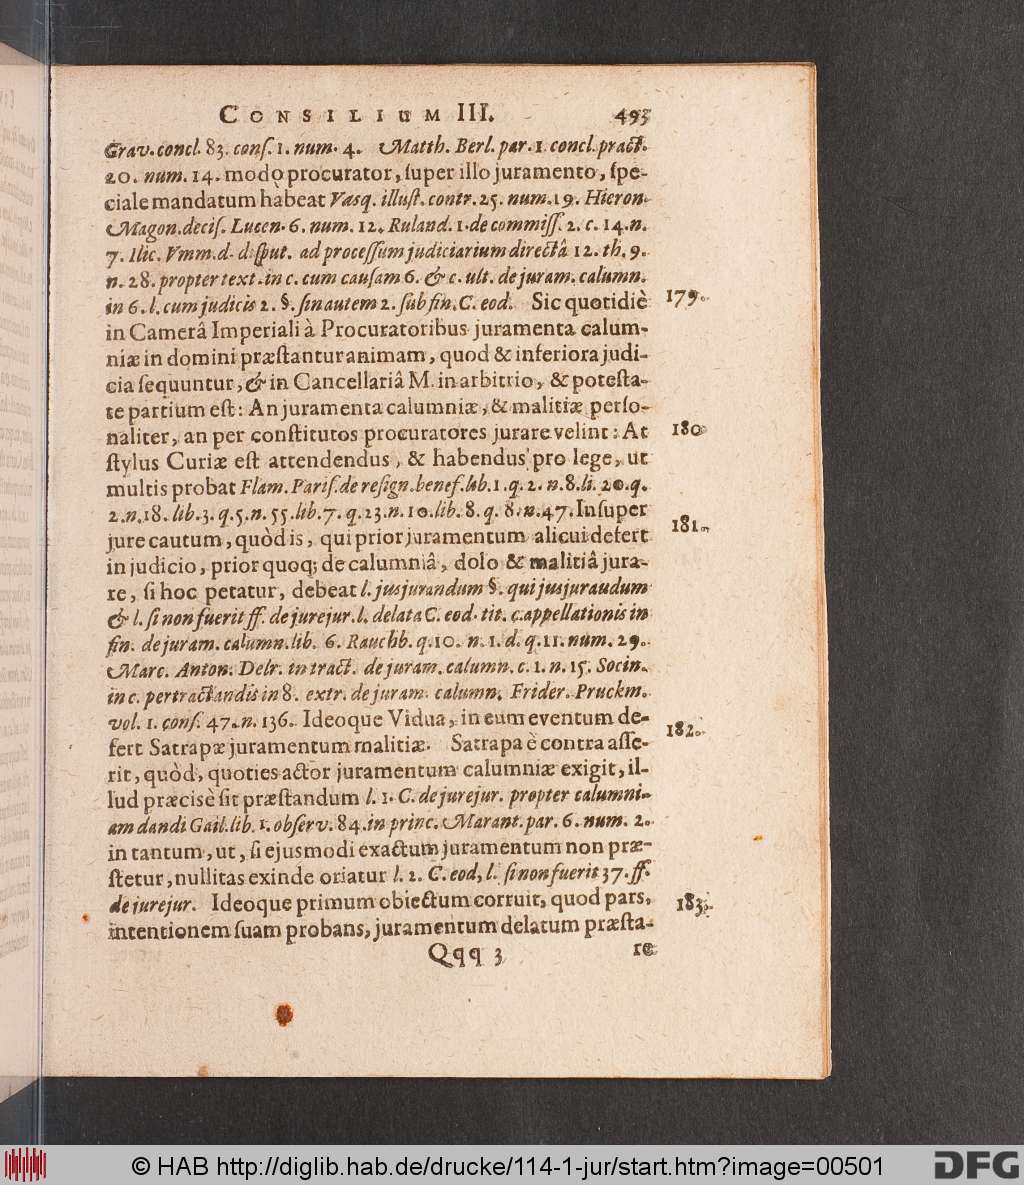 CONSILIUM III. 493
Grav. concl. 83. conſ. 1. num. 4. Matth. Berl. par. 1. concl. pract.
20. num. 14. modò procurator, ſuper illo juramento, ſpe-
ciale mandatum habeat Vasq. illuſt. contr. 25. num. 19. Hieron.
Magon. deciſ. Lucen. 6. num. 12. Ruland. 1. de commiſſ. 2. c. 14. n.
7. Ilic. Vmm. d. diſput. ad proceſſum judiciarium directâ 12. th. 9.
n. 28. propter text. in c. cum cauſam 6. & c. ult. de juram. calumn.
in 6. l. cum judicis 2. §. ſin autem 2. ſub fin. C. eod. Sic quotidiè 179.
in Camerâ Imperiali à Procuratoribus juramenta calum-
niæ in domini præſtantur animam, quod & inferiora judi-
cia ſequuntur, & in Cancellariâ M. in arbitrio, & poteſta-
te partium eſt: An juramenta calumniæ, & malitiæ perſo-
naliter, an per conſtitutos procuratores jurare velint: At 180
ſtylus Curiæ eſt attendendus, & habendus pro lege, ut
multis probat Flam. Pariſ. de reſign. benef. lib. 1. q. 2. n. 8. li. 20. q.
2. n. 18. lib. 3. q. 5. n. 55. lib. 7. q. 23. n. 10. lib. 8. q. 8. n. 47. Inſuper
jure cautum, quòd is, qui prior juramentum alicui defert 181.
in judicio, prior quoq; de calumniâ, dolo & malitiâ jura-
re, ſi hoc petatur, debeat l. jusjurandum §. qui jusjuraudum
& l. ſi non fuerit ff. de jurejur. l. delata C. eod. tit. c. appellationis in
fin. de juram. calumn. lib. 6. Rauchb. q. 10. n. 1. d. q. 11. num. 29.
Marc. Anton. Delr. in tract. de juram. calumn. c. 1. n. 15. Socin.
in c. pertractandis in 8. extr. de juram. calumn. Frider. Pruckm.
vol. 1. conſ. 47. n. 136. Ideoque Vidua, in eum eventum de-
fert Satrapæ juramentum malitiæ. Satrapa è contra aſſe- 182.
rit, quòd, quoties actor juramentum calumniæ exigit, il-
lud præcisè ſit præſtandum l. 1. C. de jurejur. propter calumni-
am dandi Gail. lib. 1. obſerv. 84. in princ. Marant. par. 6. num. 2.
in tantum, ut, ſi ejusmodi exactum juramentum non præ-
ſtetur, nullitas exinde oriatur l. 2. C. eod, l. ſi non fuerit 37. ff.
de jurejur. Ideoque primum obiectum corruit, quod pars, 183.
intentionem ſuam probans, juramentum delatum præſta-
Qqq 3 re
© HAB http://diglib.hab.de/drucke/114-1-jur/start.htm?image=00501
DFG